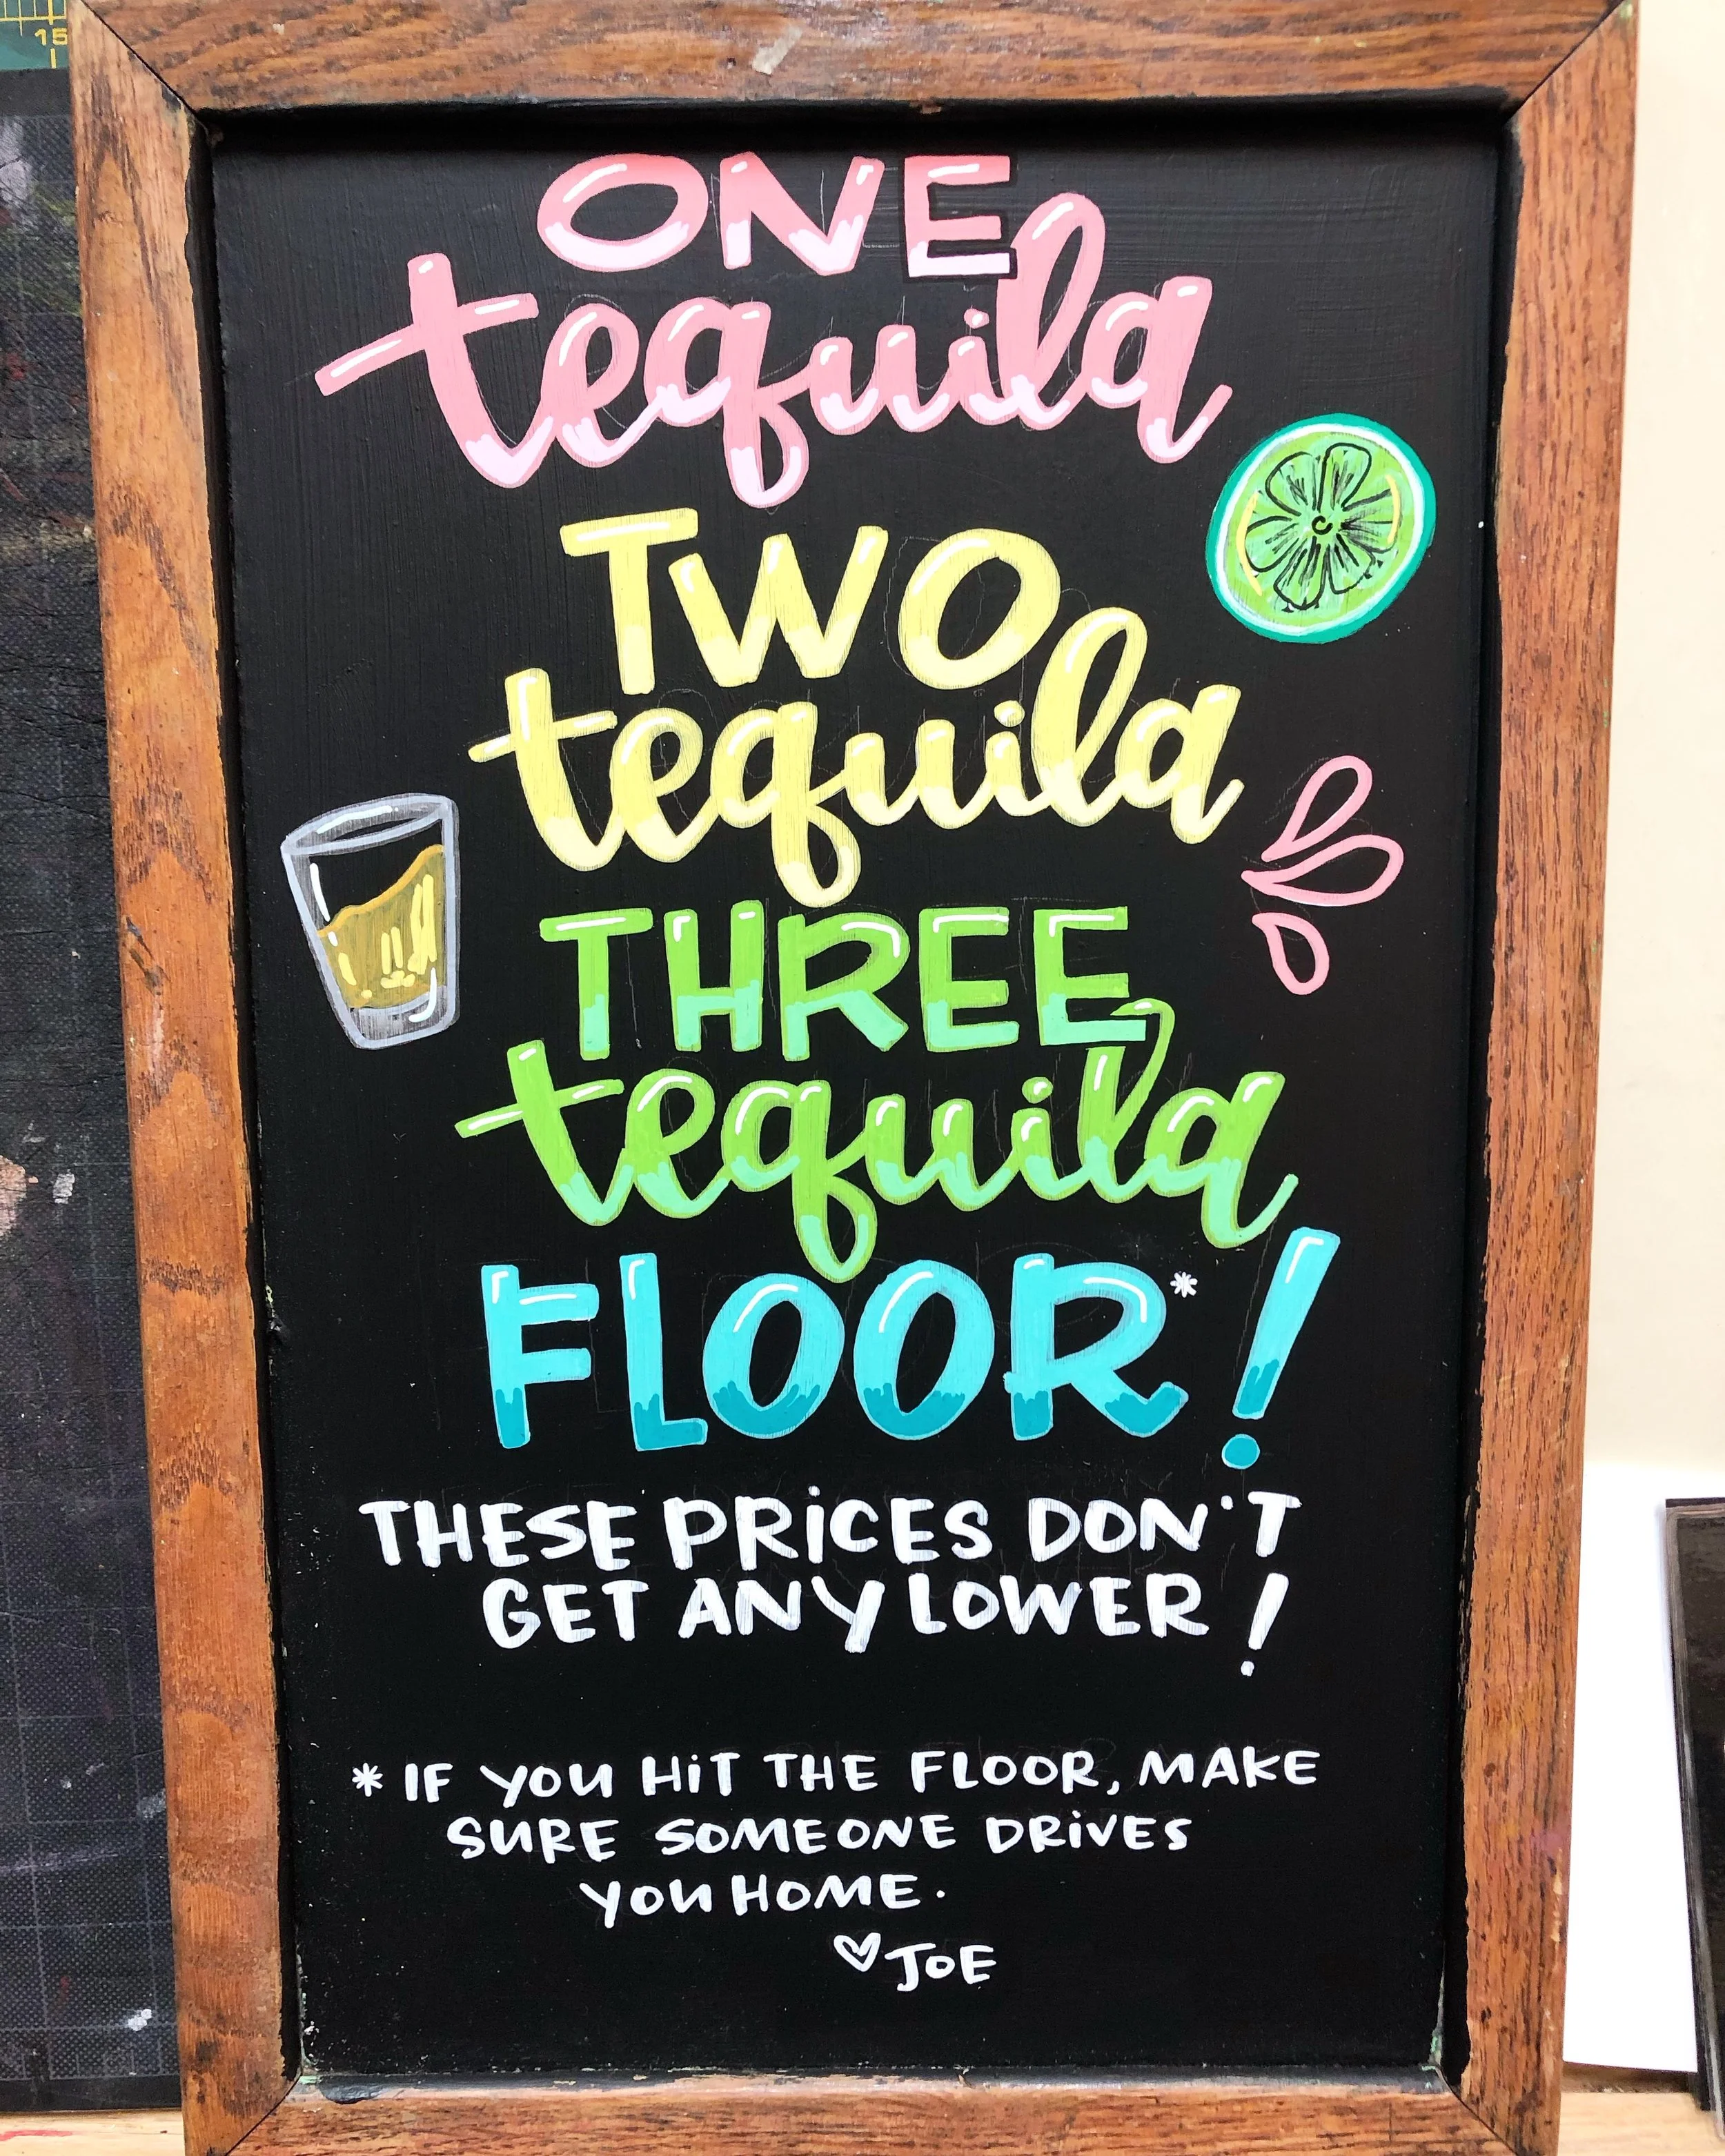 15
ONE
tequila
TWO
tequila
THREE
tequila
FLOOR*!
THESE PRICES DON'T
GET ANY LOWER!
* IF YOU HIT THE FLOOR, MAKE
SURE SOMEONE DRIVES
YOU HOME.
♡ JOE